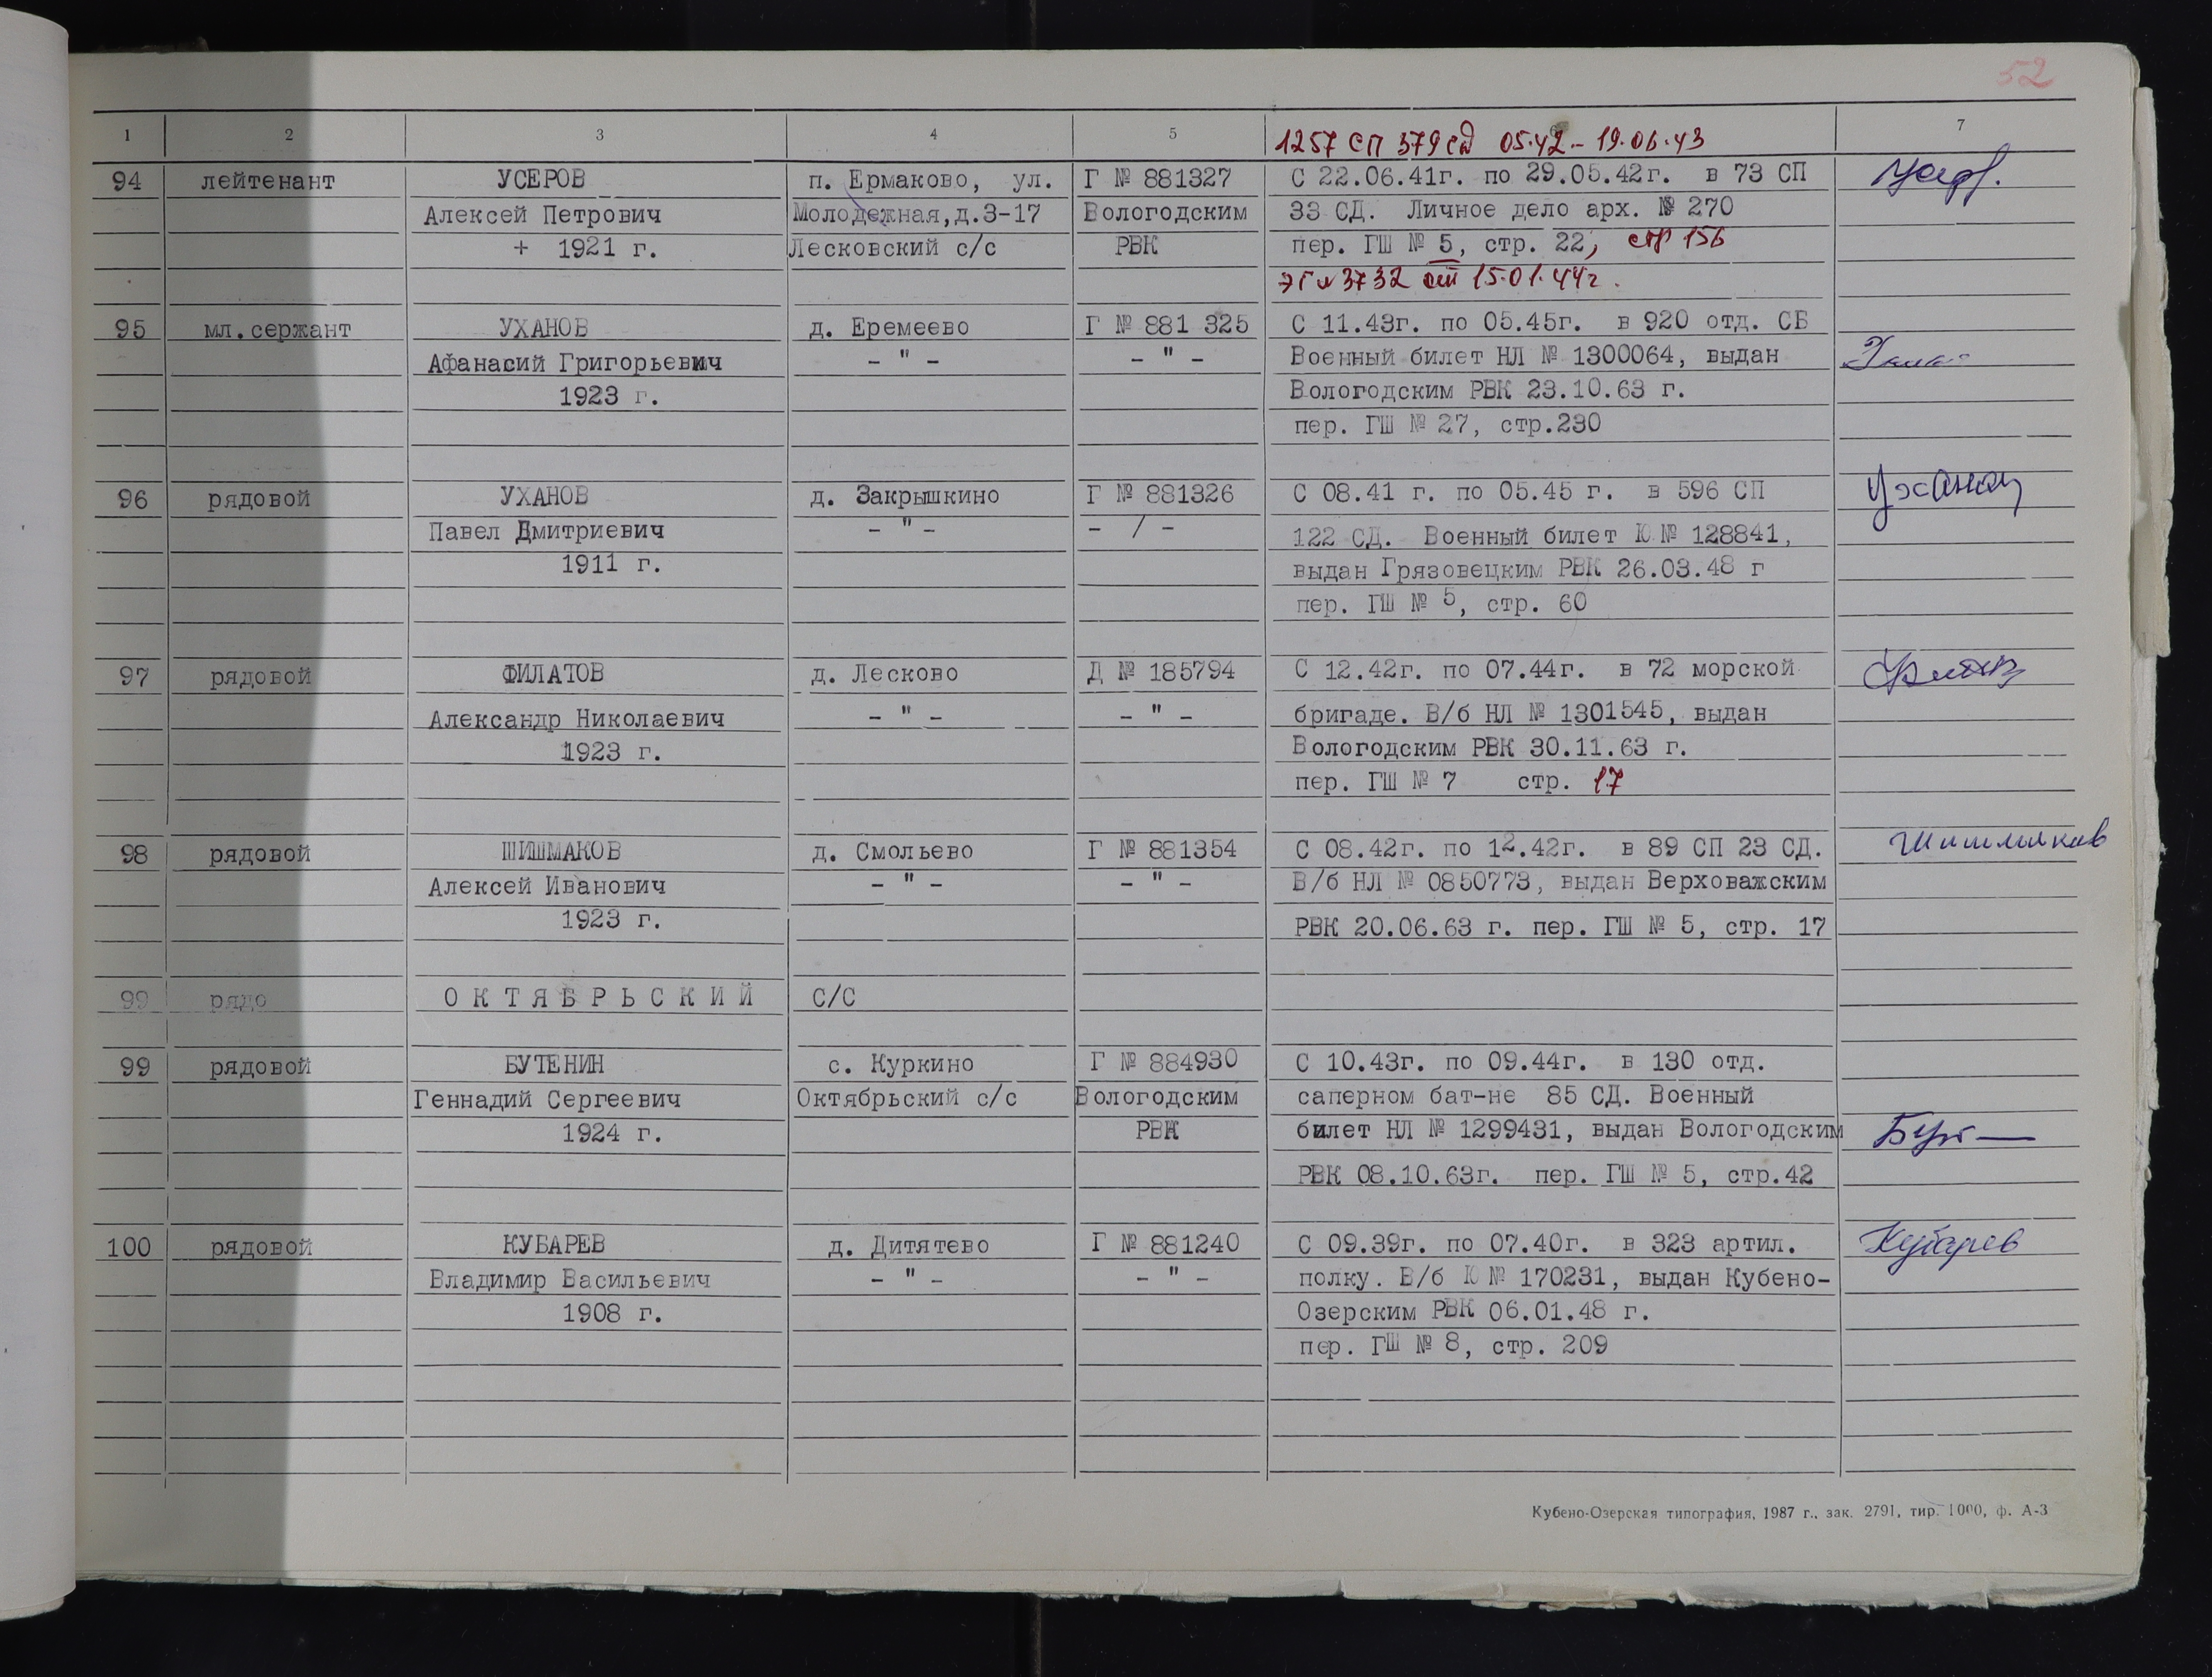 52
1 2 3 4 5 6 7
1257 СП 379 сд 05.42 – 19.06.43
94 лейтенант УСЕРОВ п. Ермаково, ул. Г № 881327 С 22.06.41г. по 29.05.42г. в 73 СП
Алексей Петрович Молодежная,д.3-17 Вологодским 33 СД. Личное дело арх. № 270
+ 1921 г. Лесковский с/с РВК пер. ГШ № 5, стр. 22, стр 156
эг №3732 от 15.01.44г.
95 мл.сержант УХАНОВ д. Еремеево Г № 881 325 С 11.43г. по 05.45г. в 920 отд. СБ
Афанасий Григорьевич – " – – " – Военный билет НЛ № 1300064, выдан
1923 г. Вологодским РВК 23.10.63 г.
пер. ГШ № 27, стр.230
96 рядовой УХАНОВ д. Закрышкино Г № 881326 С 08.41 г. по 05.45 г. в 596 СП Уханов
Павел Дмитриевич – " – – / – 122 СД. Военный билет Ю № 128841,
1911 г. выдан Грязовецким РВК 26.03.48 г
пер. ГШ № 5, стр. 60
97 рядовой ФИЛАТОВ д. Лесково Д № 185794 С 12.42г. по 07.44г. в 72 морской
Александр Николаевич – " – – " – бригаде. В/б НЛ № 1301545, выдан
1923 г. Вологодским РВК 30.11.63 г.
пер. ГШ № 7 стр. 17
98 рядовой ШИШМАКОВ д. Смольево Г № 881354 С 08.42г. по 12.42г. в 89 СП 23 СД. Шишмаков
Алексей Иванович – " – – " – В/б НЛ № 0850773, выдан Верховажским
1923 г. РВК 20.06.63 г. пер. ГШ № 5, стр. 17
99 рядо О К Т Я Б Р Ь С К И Й С/С
99 рядовой БУТЕНИН с. Куркино Г № 884930 С 10.43г. по 09.44г. в 130 отд.
Геннадий Сергеевич Октябрьский с/с Вологодским саперном бат-не 85 СД. Военный
1924 г. РВК билет НЛ № 1299431, выдан Вологодским
РВК 08.10.63г. пер. ГШ № 5, стр.42
100 рядовой КУБАРЕВ д. Дитятево Г № 881240 С 09.39г. по 07.40г. в 323 артил. Кубарев
Владимир Васильевич – " – – " – полку. В/б Ю № 170231, выдан Кубено-
1908 г. Озерским РВК 06.01.48 г.
пер. ГШ № 8, стр. 209
Кубено-Озерская типография, 1987 г., зак. 2791, тир. 1000, ф. А-3